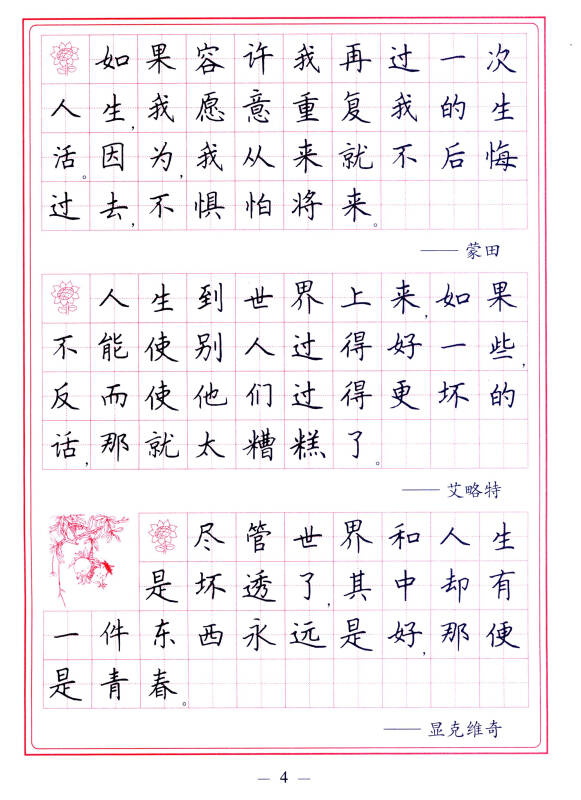 如果容许我再过一次
人生,我愿意重复我的生
活。因为,我从来就不后悔
过去,不惧怕将来。
—— 蒙田
人生到世界上来,如果
不能使别人过得好一些,
反而使他们过得更坏的
话,那就太糟糕了。
—— 艾略特
尽管世界和人生
是坏透了,其中却有
一件东西永远是好,那便
是青春。
—— 显克维奇
— 4 —